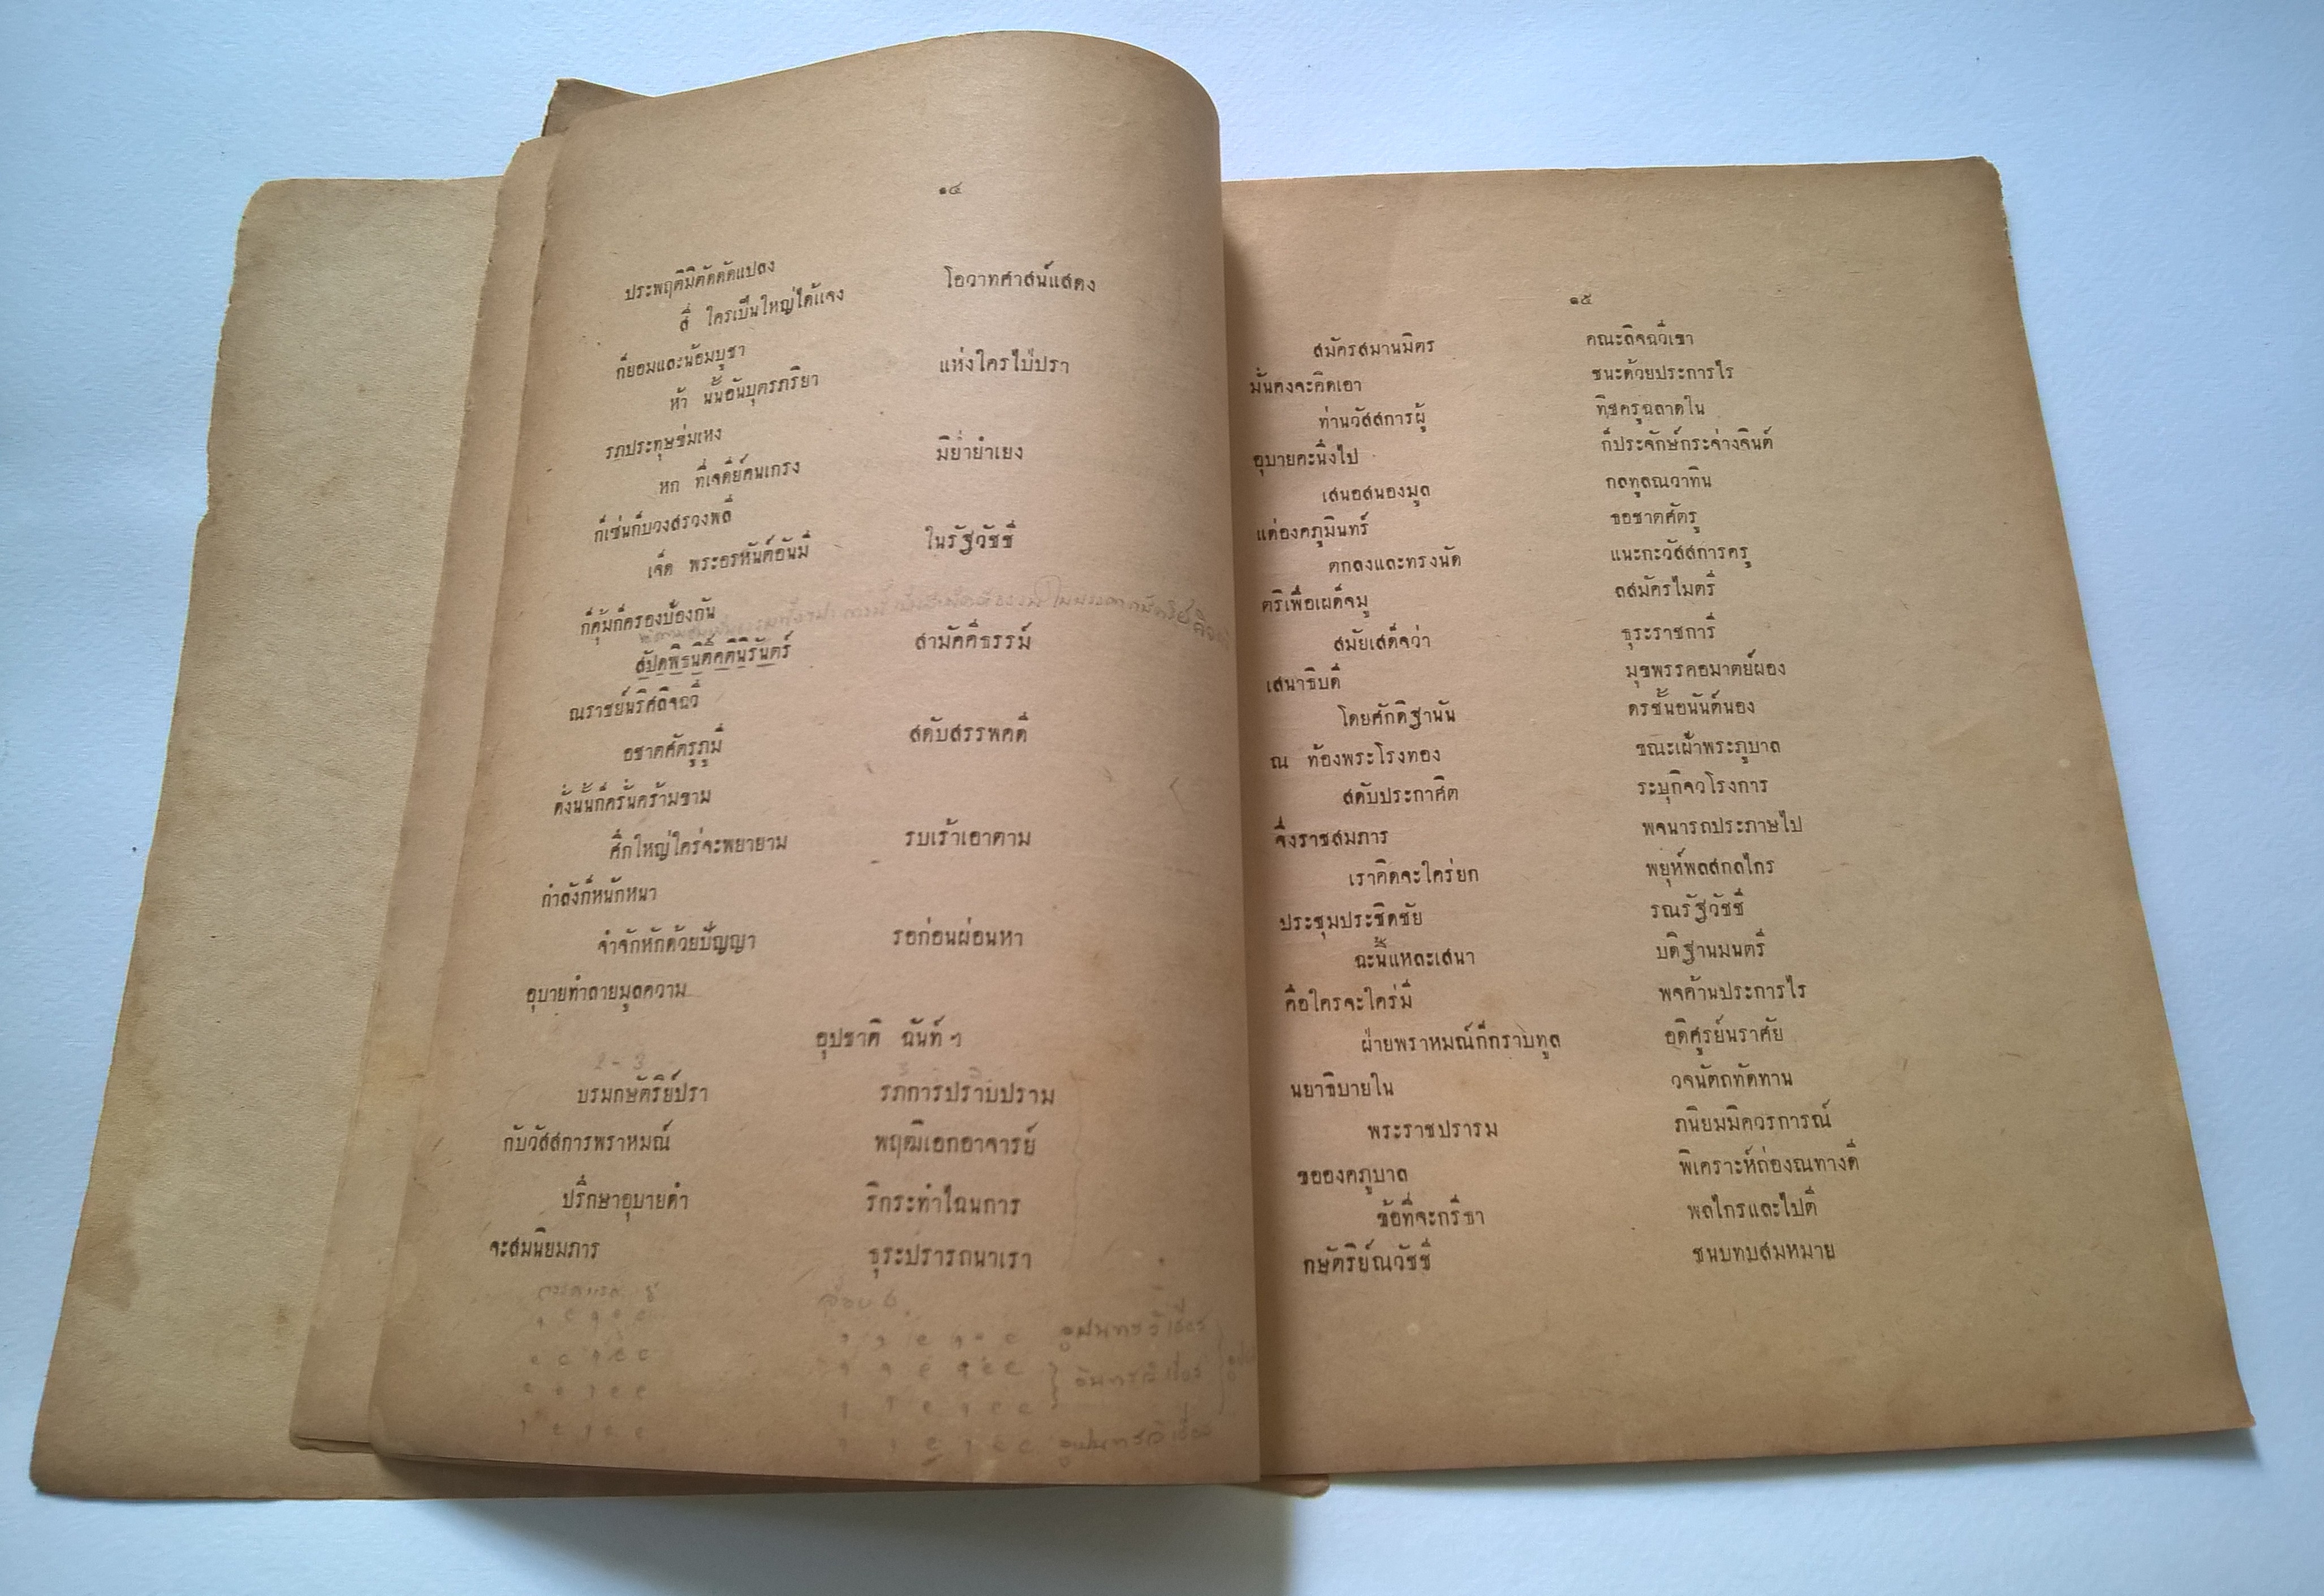 ๑๔
ประพฤติมิตัดดัดแปลง โอวาทศาสน์แสดง
สี่ ใครเป็นใหญ่ได้แจง
ก็ยอมและน้อมบูชา แห่งใครไป่ปรา
ห้า นั้นอันบุตรภริยา
รภประทุษข่มเหง มิย่ำยำเยง
หก ที่เจดีย์คนเกรง
ก็เซ่นก็บวงสรวงพลี ในรัฐวัชชี
เจ็ด พระอรหันต์อันมี
ก็คุ้มก็ครองป้องกัน สามัคคีธรรม์
สัปดพิธนิติ์คตินิรันตร์
ณราชย์นริศลิจฉวี สดับสรรพคดี
อชาตศัตรุภูมี
ดั่งนั้นก็ครั่นคร้ามขาม รบเร้าเอาตาม
ศึกใหญ่ใคร่จะพยายาม
กำลังก็หนักหนา รอก่อนผ่อนหา
จำจักหักด้วยปัญญา
อุบายทำลายมูลความ
อุปชาติ ฉันท์ ฯ
2-3
บรมกษัตริย์ปรา รภการปราบปราม
กับวัสสการพราหมณ์ พฤฒิเอกอาจารย์
ปรึกษาอุบายดำ ริกระทำไฉนการ
จะสมนิยมภาร ธุระปรารถนาเรา
๑๕
สมัครสมานมิตร คณะลิจฉวีเขา
มั่นคงจะคิดเอา ชนะด้วยประการไร
ท่านวัสสการผู้ ทิชครุฉลาดใน
อุบายคะนึงไป ก็ประจักษ์กระจ่างจินต์
เสนอสนองมูล กลทูลณวาทิน
แด่องคภูมินทร์ ขอชาตศัตรุ
ตกลงและทรงนัด แนะกะวัสสการครุ
ตริเพื่อเผด็จมู ลสมัครไมตรี
สมัยเสด็จว่า ธุระราชการี
เสนาธิบดี มุขพรรคอมาตย์ผอง
โดยศักดิฐานัน ดรชั้นอนันต์นอง
ณ ท้องพระโรงทอง ขณะเฝ้าพระภูบาล
สดับประกาศิต ระบุกิจวโรงการ
จึ่งราชสมภาร พจนารถประภาษไป
เราคิดจะใคร่ยก พยุห์พลสกลไกร
ประชุมประชิดชัย รณรัฐวัชชี
ฉะนี้แหละเสนา บดิฐานมนตรี
คือใครจะใคร่มี พจค้านประการไร
ฝ่ายพราหมณ์ก็กราบทูล อดิศูรย์นราศัย
นยาธิบายใน วจนัตถทัดทาน
พระราชปรารม ภนิยมมิควรการณ์
ขอองคภูบาล พิเคราะห์ถ่องณทางดี
ข้อที่จะกรีธา พลไกรและไปตี
กษัตริย์ณวัชชี ชนบทบสมหมาย